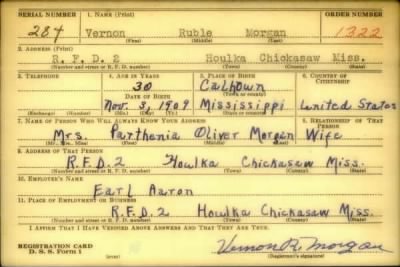 SERIAL NUMBER 1. NAME (Print) ORDER NUMBER
284 Vernon Ruble Morgan 1322
(First) (Middle) (Last)
2. ADDRESS (Print)
R. F. D. 2 Houlka Chickasaw Miss.
(Number and street or R. F. D. number) (Town) (County) (State)
3. TELEPHONE 4. AGE IN YEARS 5. PLACE OF BIRTH 6. COUNTRY OF CITIZENSHIP
30 Calhoun
DATE OF BIRTH (Town or county)
Nov. 3, 1909 Mississippi United States
(Exchange) (Number) (Mo.) (Day) (Yr.) (State or country)
7. NAME OF PERSON WHO WILL ALWAYS KNOW YOUR ADDRESS 8. RELATIONSHIP OF THAT PERSON
Mrs. Parthenia Oliver Morgan Wife
(Mr., Mrs., Miss) (First) (Middle) (Last)
9. ADDRESS OF THAT PERSON
R.F.D.2 Houlka Chickasaw Miss.
(Number and street or R. F. D. number) (Town) (County) (State)
10. EMPLOYER'S NAME
Earl Aaron
11. PLACE OF EMPLOYMENT OR BUSINESS
R.F.D. 2 Houlka Chickasaw Miss.
(Number and street or R. F. D. number) (Town) (County) (State)
I AFFIRM THAT I HAVE VERIFIED ABOVE ANSWERS AND THAT THEY ARE TRUE.
REGISTRATION CARD
D. S. S. Form 1 Vernon R. Morgan
(over) (Registrant's signature)